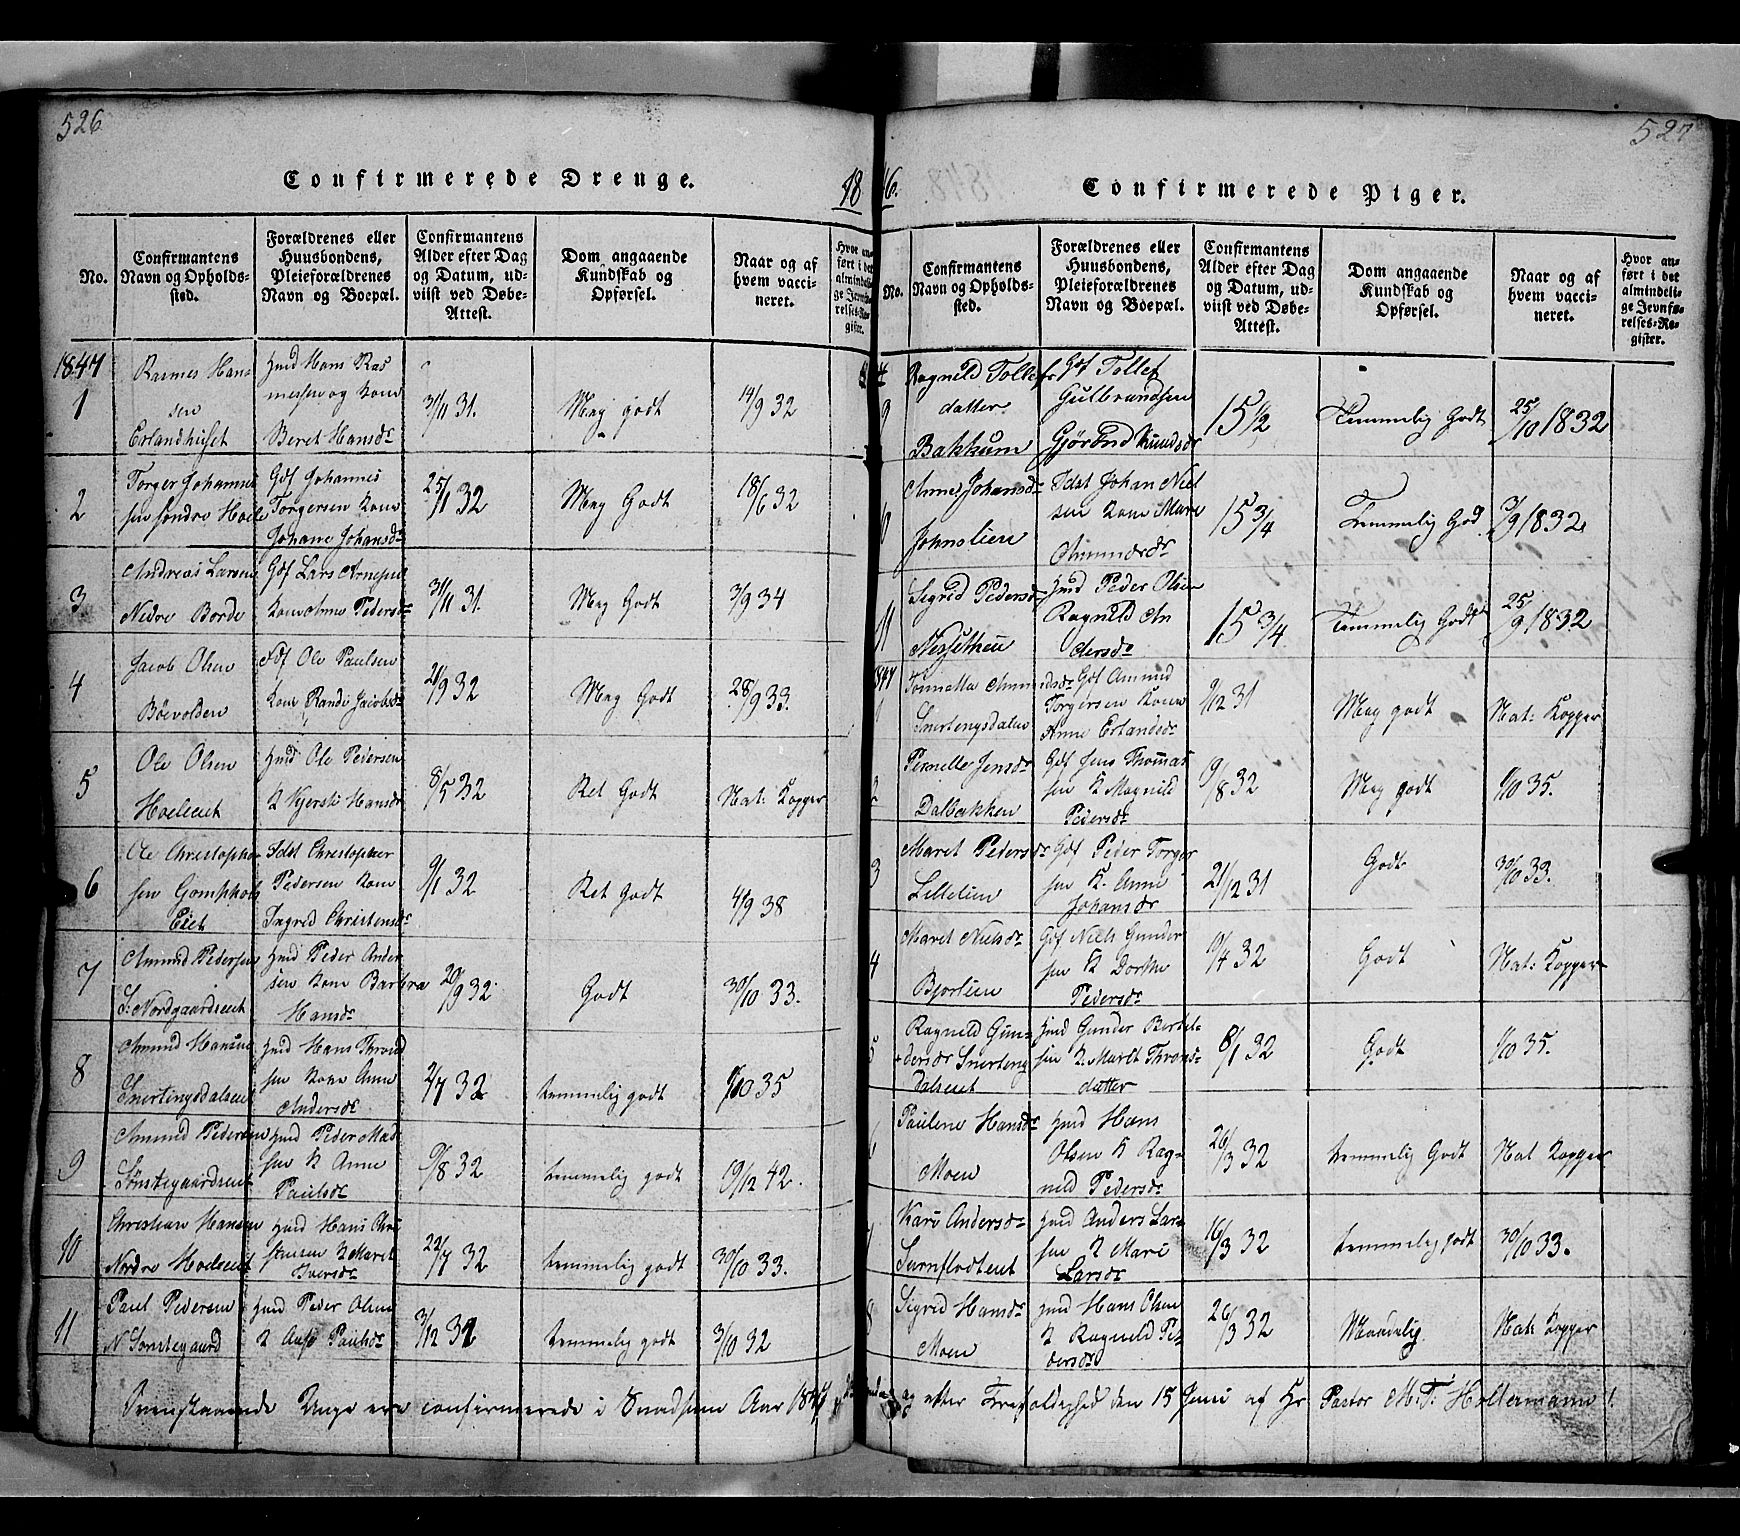 526
Confirmerede Drenge.
18
No.
Confirmantens Navn og Opholds-sted.
Forældrenes eller Huusbondens, Pleieforældrenes Navn og Boepæl.
Confirmantens Alder efter Dag og Datum, ud-viist ved Døbe-Attest.
Dom angaaende Kundskab og Opførsel.
Naar og af hvem vacci-neret.
Hvor an-ført i det almindeli-ge Jevnfø-relses-Re-gister.
1847
1
Rasmes Han-
sen
Erlandhuset
Hmd Hans Ras
messen og Kone
Beret Hansdr
31/11 31.
Meg godt
14/9 32
2
Torger Johannes
sen søndre Hoele
Gdf Johannes
Torgersen Kone
Johane Johansdr
25/1 32
Meg Godt
18/6 32
3
Andreas Larsen
Nedre Borde
Gdf Lars Arnesen
Kone Anne Pedersdr
31/11 31.
Meg Godt
3/9 34
4
Jacob Olsen
Böevolden
Gdf Ole Paulsen
Kone Rande Jacobsdr
21/9 32
Meg Godt
28/9 33.
5
Ole Olsen
Hoeleeiet
Hmd Ole Pedersen
K Kjersti Hansdr
8/5 32
Ret Godt
Nat: Kopper
6
Ole Christopher
sen
Eiet
Idst Christopher
Pedersen Kone
Ingred Christensdr
9/1 32
Ret Godt
4/9 38
7
Amund Pedersen
S: Nordgaardseiet
Hmd Peder Ander
sen Kone Barbra
Hansdr
20/9 32
Godt
30/10 33.
8
Amund Hansen
Snertingsdalseiet
Hmd Hans Thrond
sen Kone Anne
Andersdr
2/7 32
temmelig godt
1/10 35
9
Amund Pedersen
Sönstegaardseiet
Hmd Peder Mad
sen K Anne
Paulsdr
9/8 32
temmelig godt
19/12 42.
10
Christian Hansen
Nordre Hoelseiet
Hmd Hans Chri
stensen K Maret
Iversdr
22/7 32
temmelig godt
30/10 33.
11
Paul Pedersen
N Sönstegaard
Hmd Peder Olsen
K Aase Paulsdr
3/12 31
temmelig godt
3/10 32
527
6.
Confirmerede Piger.
No.
Confirmantens Navn og Opholds-sted.
Forældrenes eller Huusbondens, Pleieforældrenes Navn og Boepæl.
Confirmantens Alder efter Dag og Datum, ud-viist ved Døbe-Attest.
Dom angaaende Kundskab og Opførsel.
Naar og af hvem vacci-neret.
Hvor an-ført i det almindeli-ge Jevnfø-relses-Re-gister.
9
Ragneld Tollefs
datter
Bakkum
Gdf Tollef
Gulbrandsen
Gjörend Knudsdr
15 1/2
Temmelig Godt
25/10 1832
Anne Johansdr
Johnslien
Idst Johan Niel
sen Kone Mare
Amundsdr
15 3/4
Temmelig God
7/9 1832
11
Segred Pedersdr
Nessetheie
Hmd Peder Olsen
Ragneld An
dersdr
15 3/4
Temmelig Godt
25/9 1832
1847
1
Tonnetta Amundsdr
Snertengsdalen
Gdf Amund
Torgersen Kone
Anne Erlandsdr
9/12 31
Meg godt
Nat: Kopper
2
Pernelle Jensdr
Dalbakken
Gdf Jens Thomas
sen K Magnild
Pedersdr
9/8 32
Meg godt
1/10 35.
3
Maret Pedersdr
Lillelien
Gdf Peder Torger
sen K. Anne
Johansdr
21/12 31
Godt
30/10 33.
4
Maret Nielsdr
Bjorlien
Gdf Niels Gunder
sen K Dorthe
Pedersdr
10/4 32
Godt
Nat: Kopper
5
Ragneld Gun-
dersdr Snerteng
dalseiet
Hmd Gunder Bertel
sen K. Maret Thrond-
datter
8/1 32
Godt
1/10 35.
6
Paulene Hansdr
Moen
Hmd Hans
Olsen K Rag-
neld Pedersdr
26/3 32
temmelig Godt
Nat Kopper
7
Kari Andersdr
Surnflodteiet
Hmd Anders Lar-
sen K Mari
Larsdr
16/3 32
temmeleg godt
30/10 33.
8
Sigrid Hansdr
Moen
Hmd Hans Olsen
K Ragneld Pe-
dersdr
26/3 32
Maadelig
Nat: Kopper
Ovenstaaende Unge ere confirmerede i Snadsens Aar 1847 efter Trefoldighed den 15 Juni af Hr Pastor M. T. Holtermann